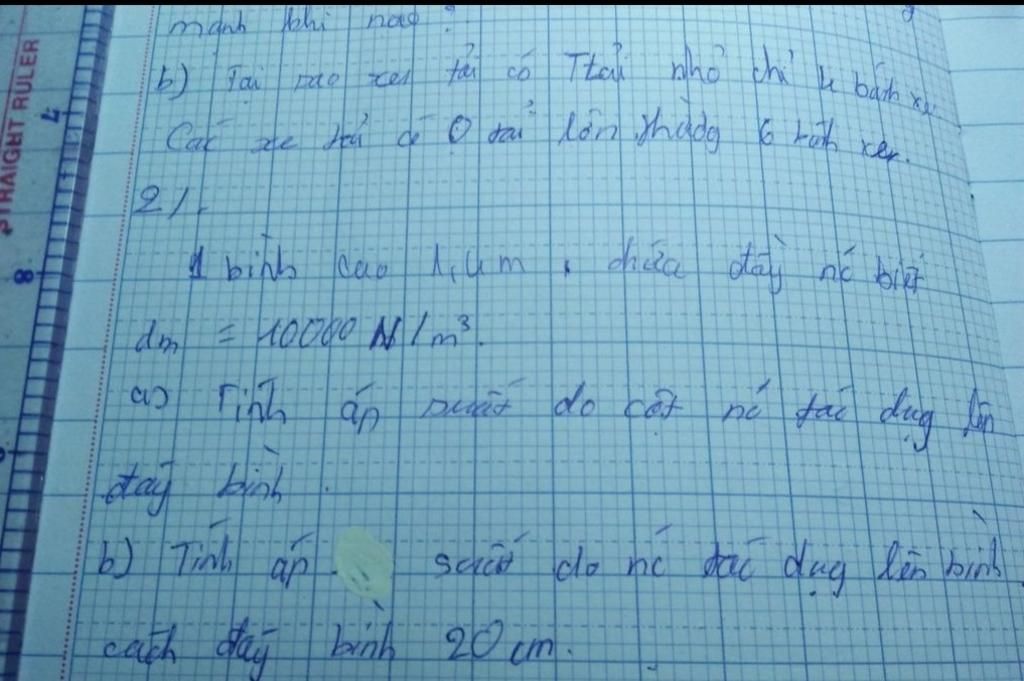 mạnh khi nào?
b) Tại sao xe tải có Ttải nhỏ chỉ 4 bánh xe
Các xe tải có ô tải lớn thường 6 bánh xe.
2/.
1 bình cao 1,4m, chứa đầy nc biết
dm = 10000 N/m³.
a) Tính áp suất do cột nc tác dụg lên
đáy bình.
b) Tính áp suất do nc tác dụg lên bình
cách đáy bình 20 cm.
STRAIGHT RULER
7
8